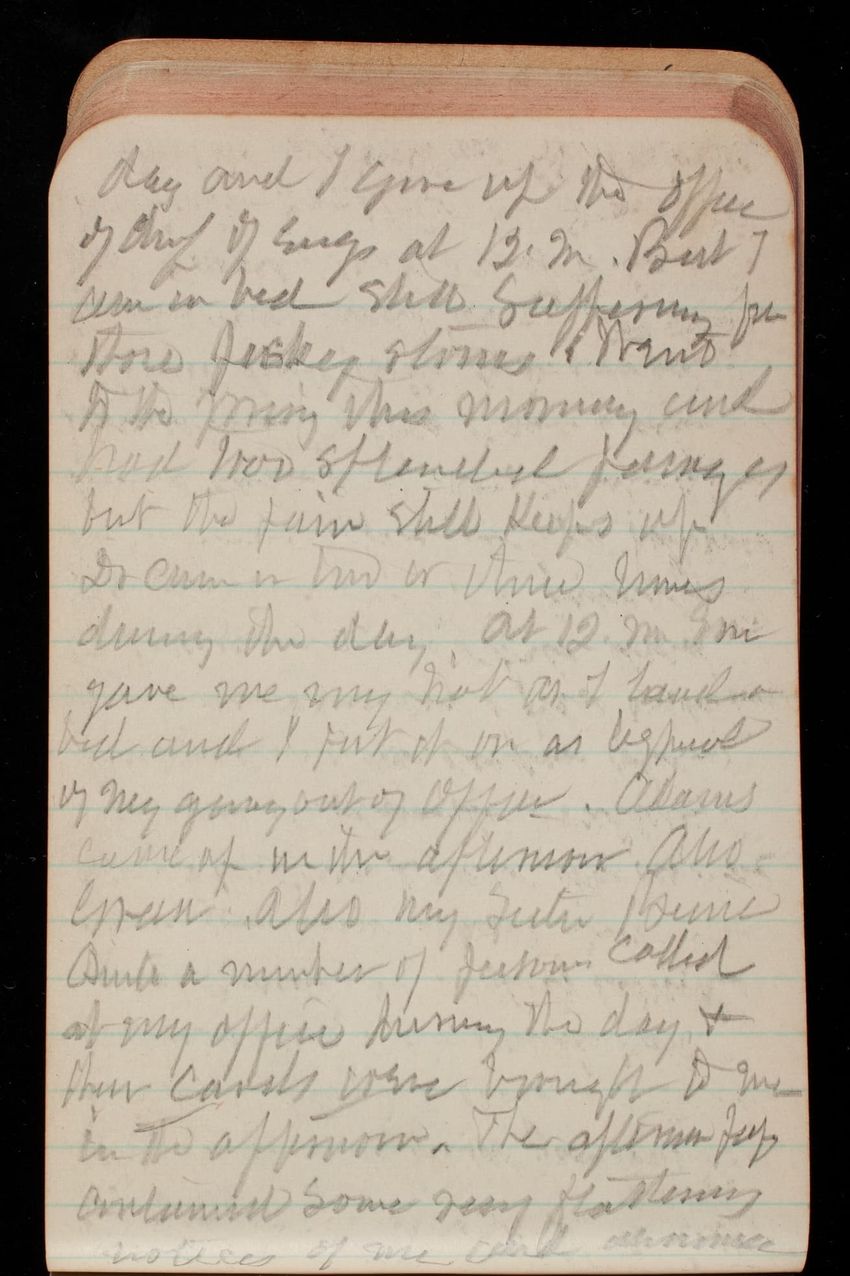 day and I give up the office
of Chf of Engs at 12. M. But I
am in bed still suffering fm
those pesky stones. I went
to the privy this morning and
had two splendid passages
but the pain still keeps up
Dr came in two or three times
during the day. At 12 M Em
gave me my hat as I laid in
bed and I put it on as
of my going out of office. Adams
came up in the afternoon. Also
Green. Also my sister
Quite a number of persons called
at my office during the day &
their cards were brought to me
in the afternoon. The afternoon pap
contained some very flattering
notices of me and announce